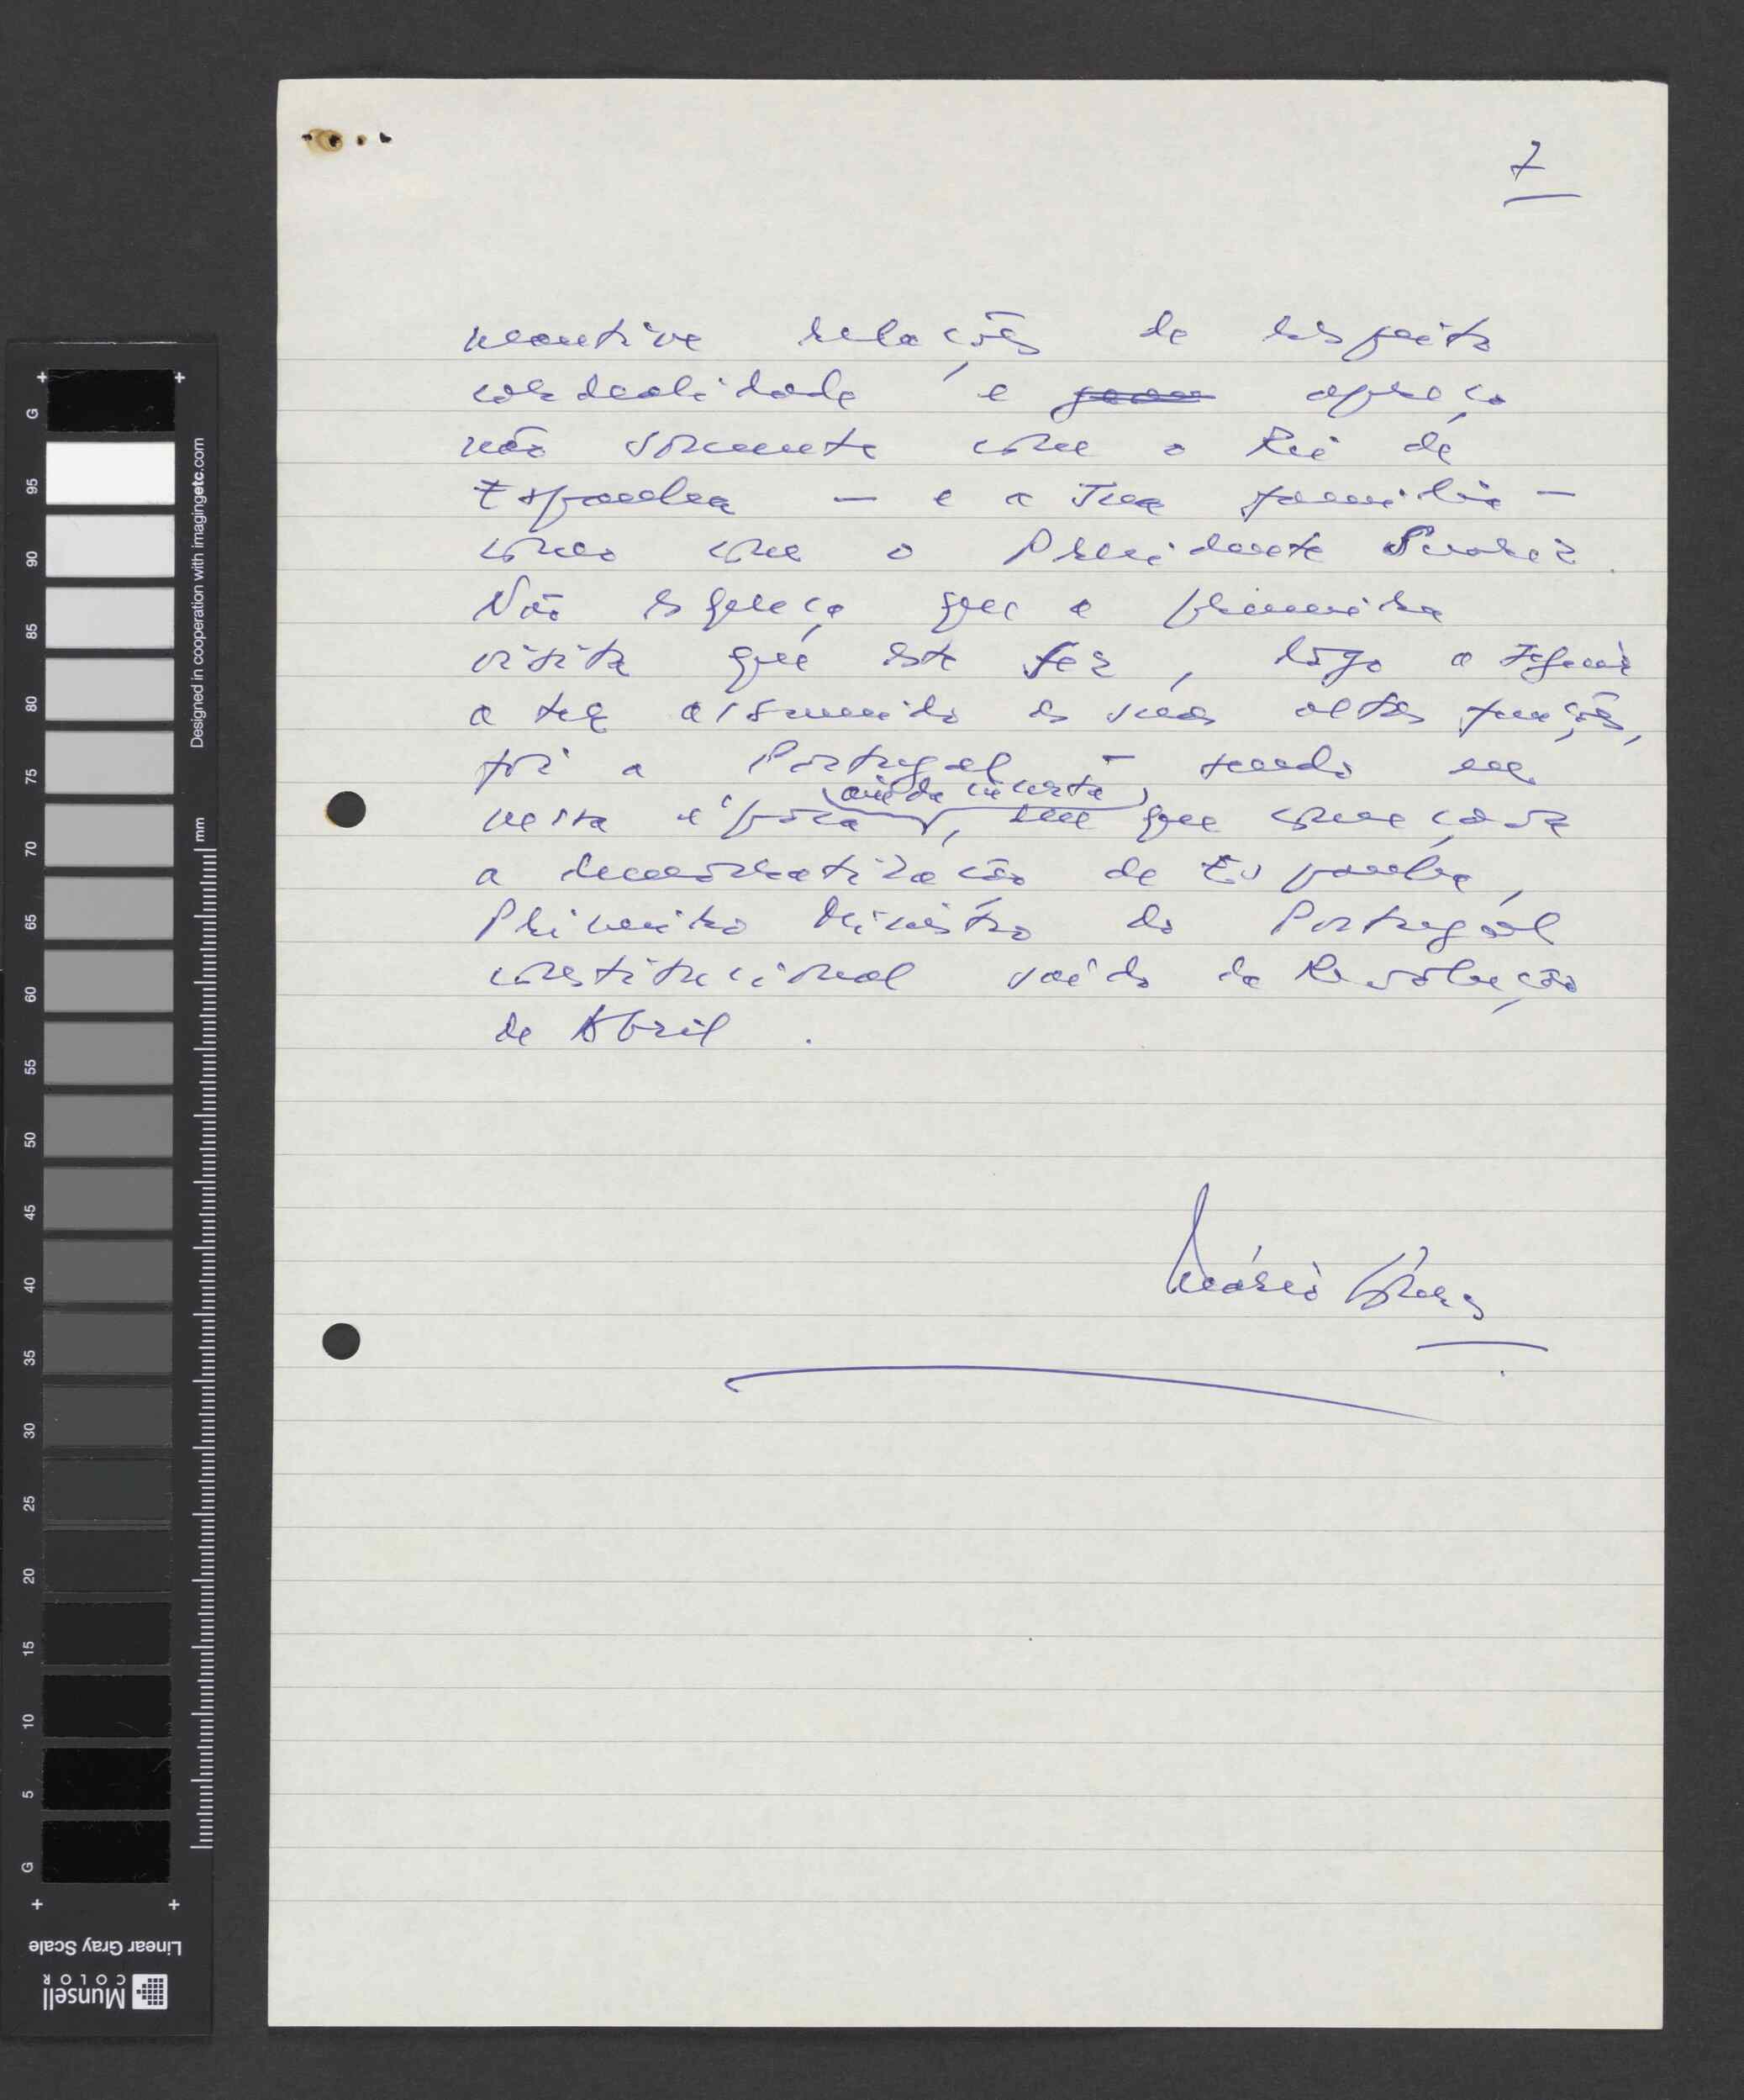 7
mantive relações de respeito
cordealidade e apreço
não somente com o Rei de
Espanha — e a sua família —
como com o Presidente Suarez.
Não esqueço que a primeira
visita que este fez, logo a seguir
a ter assumido as suas altas funções,
foi a Portugal — sendo eu,
ainda incerta
nessa época, em que começava
a democratização de Espanha,
Primeiro Ministro do Portugal
constitucional saído da Revolução
de Abril.
Mário Soares
Designed in cooperation with imagingetc.com
mm
G
95
90
85
80
75
70
65
60
55
50
45
40
35
30
25
20
15
10
5
G
Linear Gray Scale
Munsell
COLOR